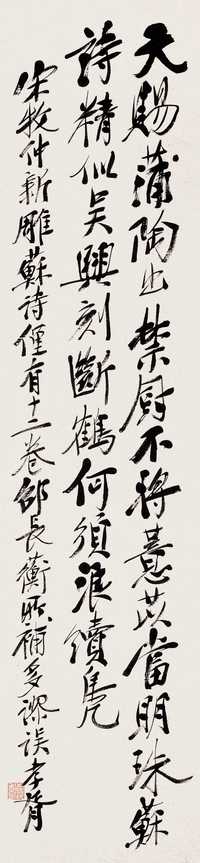 天賜蒲陶出禁厨不將薏苡當明珠蘇
詩精似吳興刻斷鶴何須浪續鳧
宋牧仲新雕蘇詩僅有十二卷邵長蘅所補多謬誤孝胥